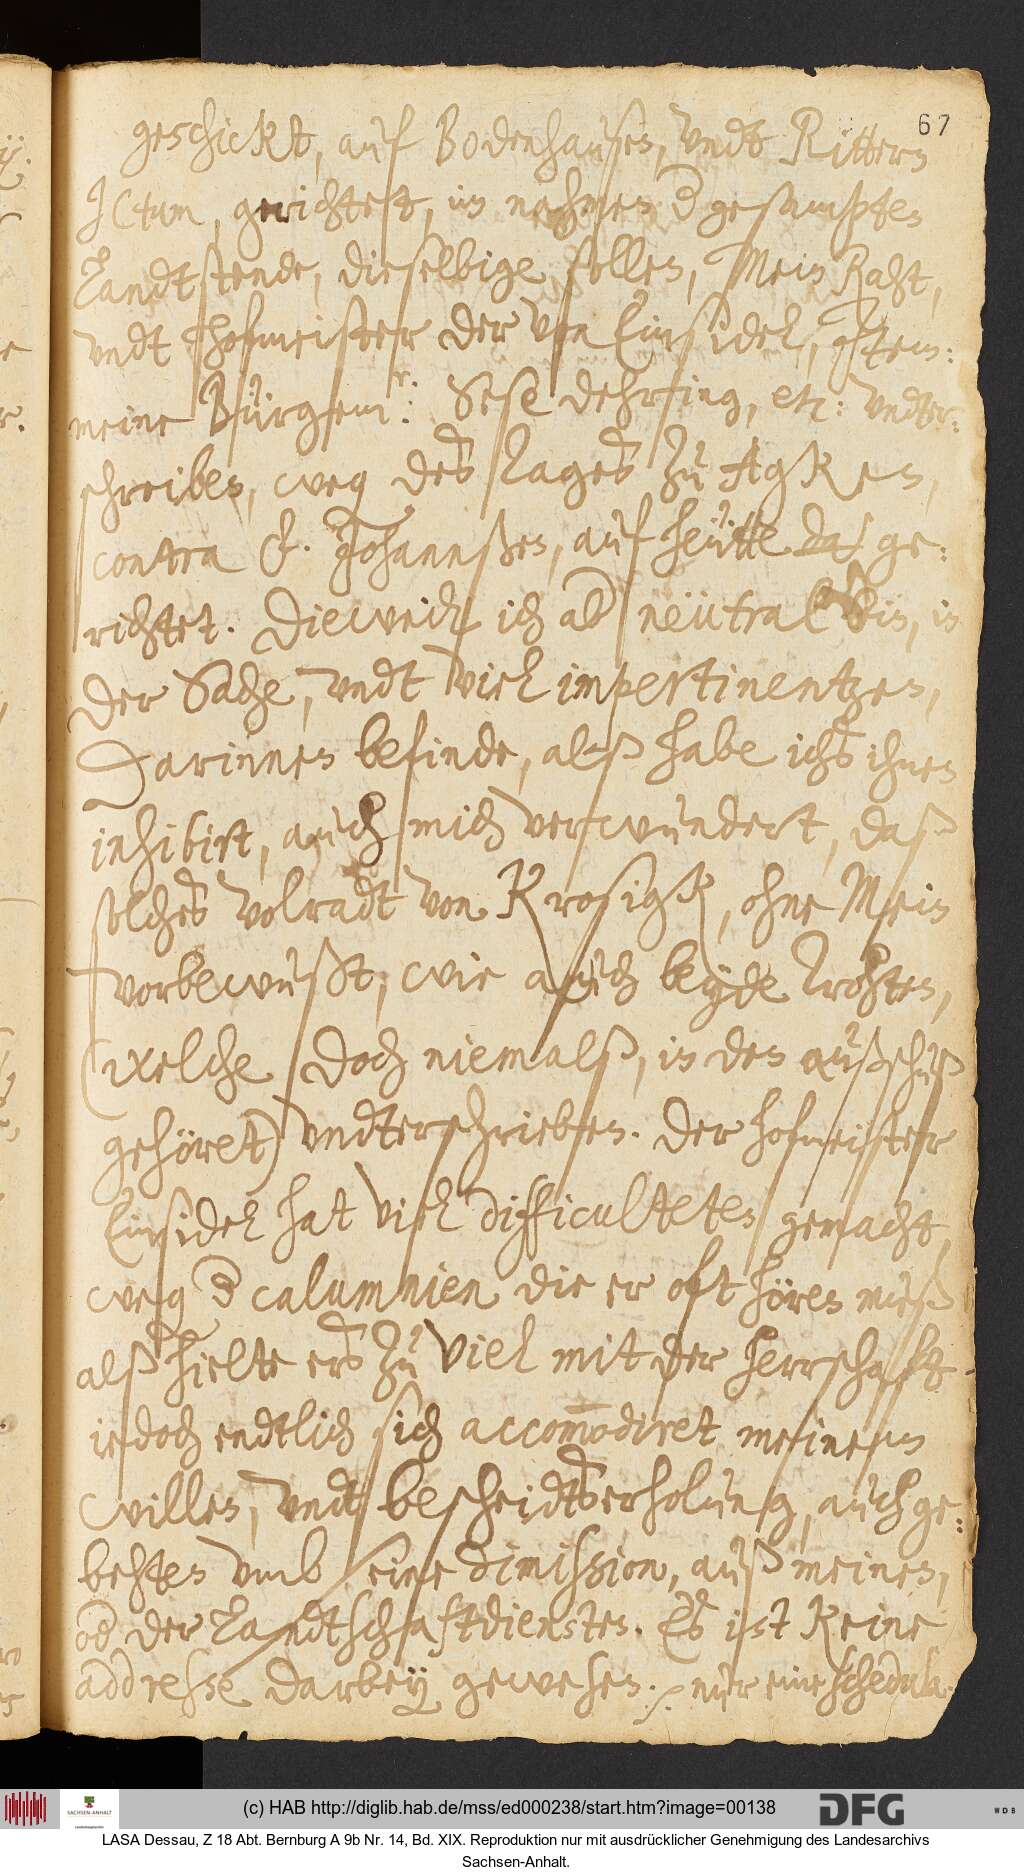 67
geschickt, auf Bodenhausen, undt Ritters
JCtum, gerichtett, in nahmen d gesampten
Landtstende, dieselbige sollen, Mein Raht,
undt hofmeister der von Einsidel,
meine Bürgem:r: Sese Dehrling, etc: undter:
schreiben, weg des Tages zu Agken,
contra C. Johannßen, auf heütte das ge:
richtet. Dieweil ich ab neütral bin, in
der Sache, undt viel impertinentzen,
darinnen befinde, alß habe ichs ihnen
inhibirt, auch mich verwundert, daß
solches Volradt von Krosigk, ohne Mein
vorbewußt, wie auch beyde Trohten,
(welche doch niemalß, in den außschuß
gehöret) undterschrieben. Der hofmeister
Einsidel hat viel difficulteten gemacht,
weg d calumnien die er oft hören muß
alß hielte ers zu viel mit der herrschafft
iedoch endtlich sich accommodiret meinem
willen, undt bescheidtserholung, auch ge:
behten umb seine dimission, auß meinen,
od der Landtschaftdiensten. Es ist keine
addresse darbey gewesen. nur eine schedula
(c) HAB http://diglib.hab.de/mss/ed000238/start.htm?image=00138
SACHSEN-ANHALT
DFG
WDB
LASA Dessau, Z 18 Abt. Bernburg A 9b Nr. 14, Bd. XIX. Reproduktion nur mit ausdrücklicher Genehmigung des Landesarchivs
Sachsen-Anhalt.